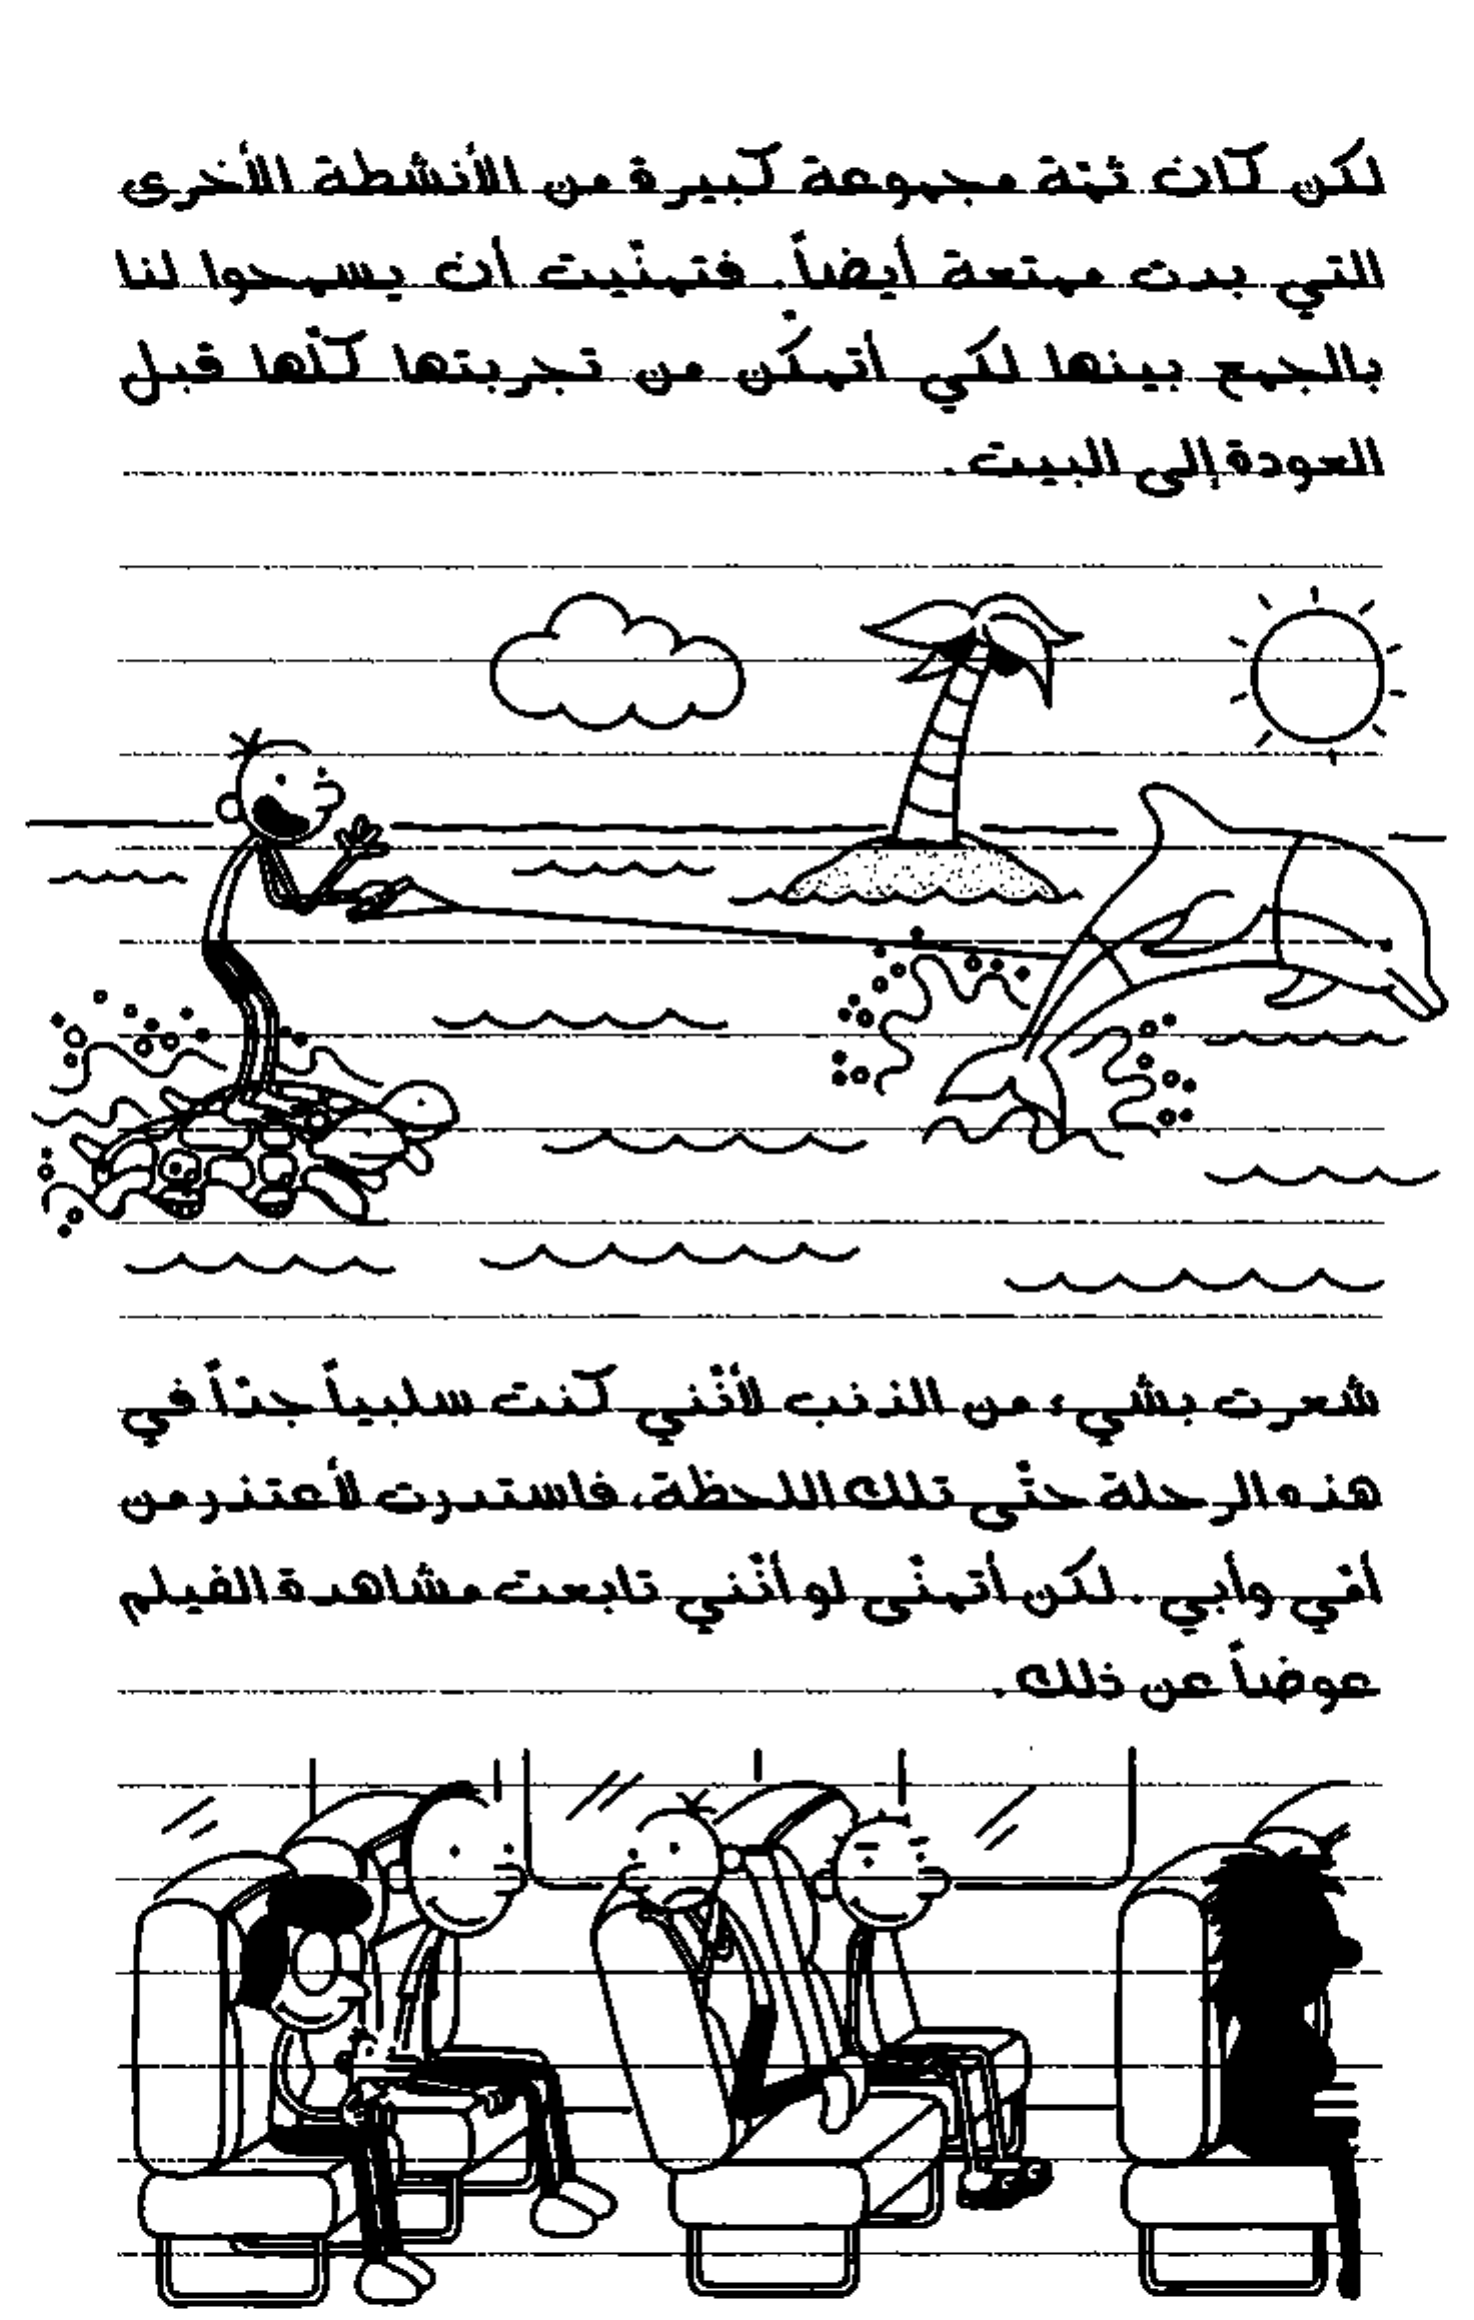 لكن كان ثمّة مجموعة كبيرة من الأنشطة الأخرى
التي بدت ممتعة أيضاً. فتمنّيت أن يسمحوا لنا
بالجمع بينها لكي أتمكّن من تجربتها كلّها قبل
العودة إلى البيت.
شعرت بشيء من الذنب لأنّني كنت سلبياً جدّاً في
هذه الرحلة حتّى تلك اللحظة، فاستدرت لأعتذر من
أمّي وأبي. لكن أتمنّى لو أنّني تابعت مشاهدة الفيلم
عوضاً عن ذلك.